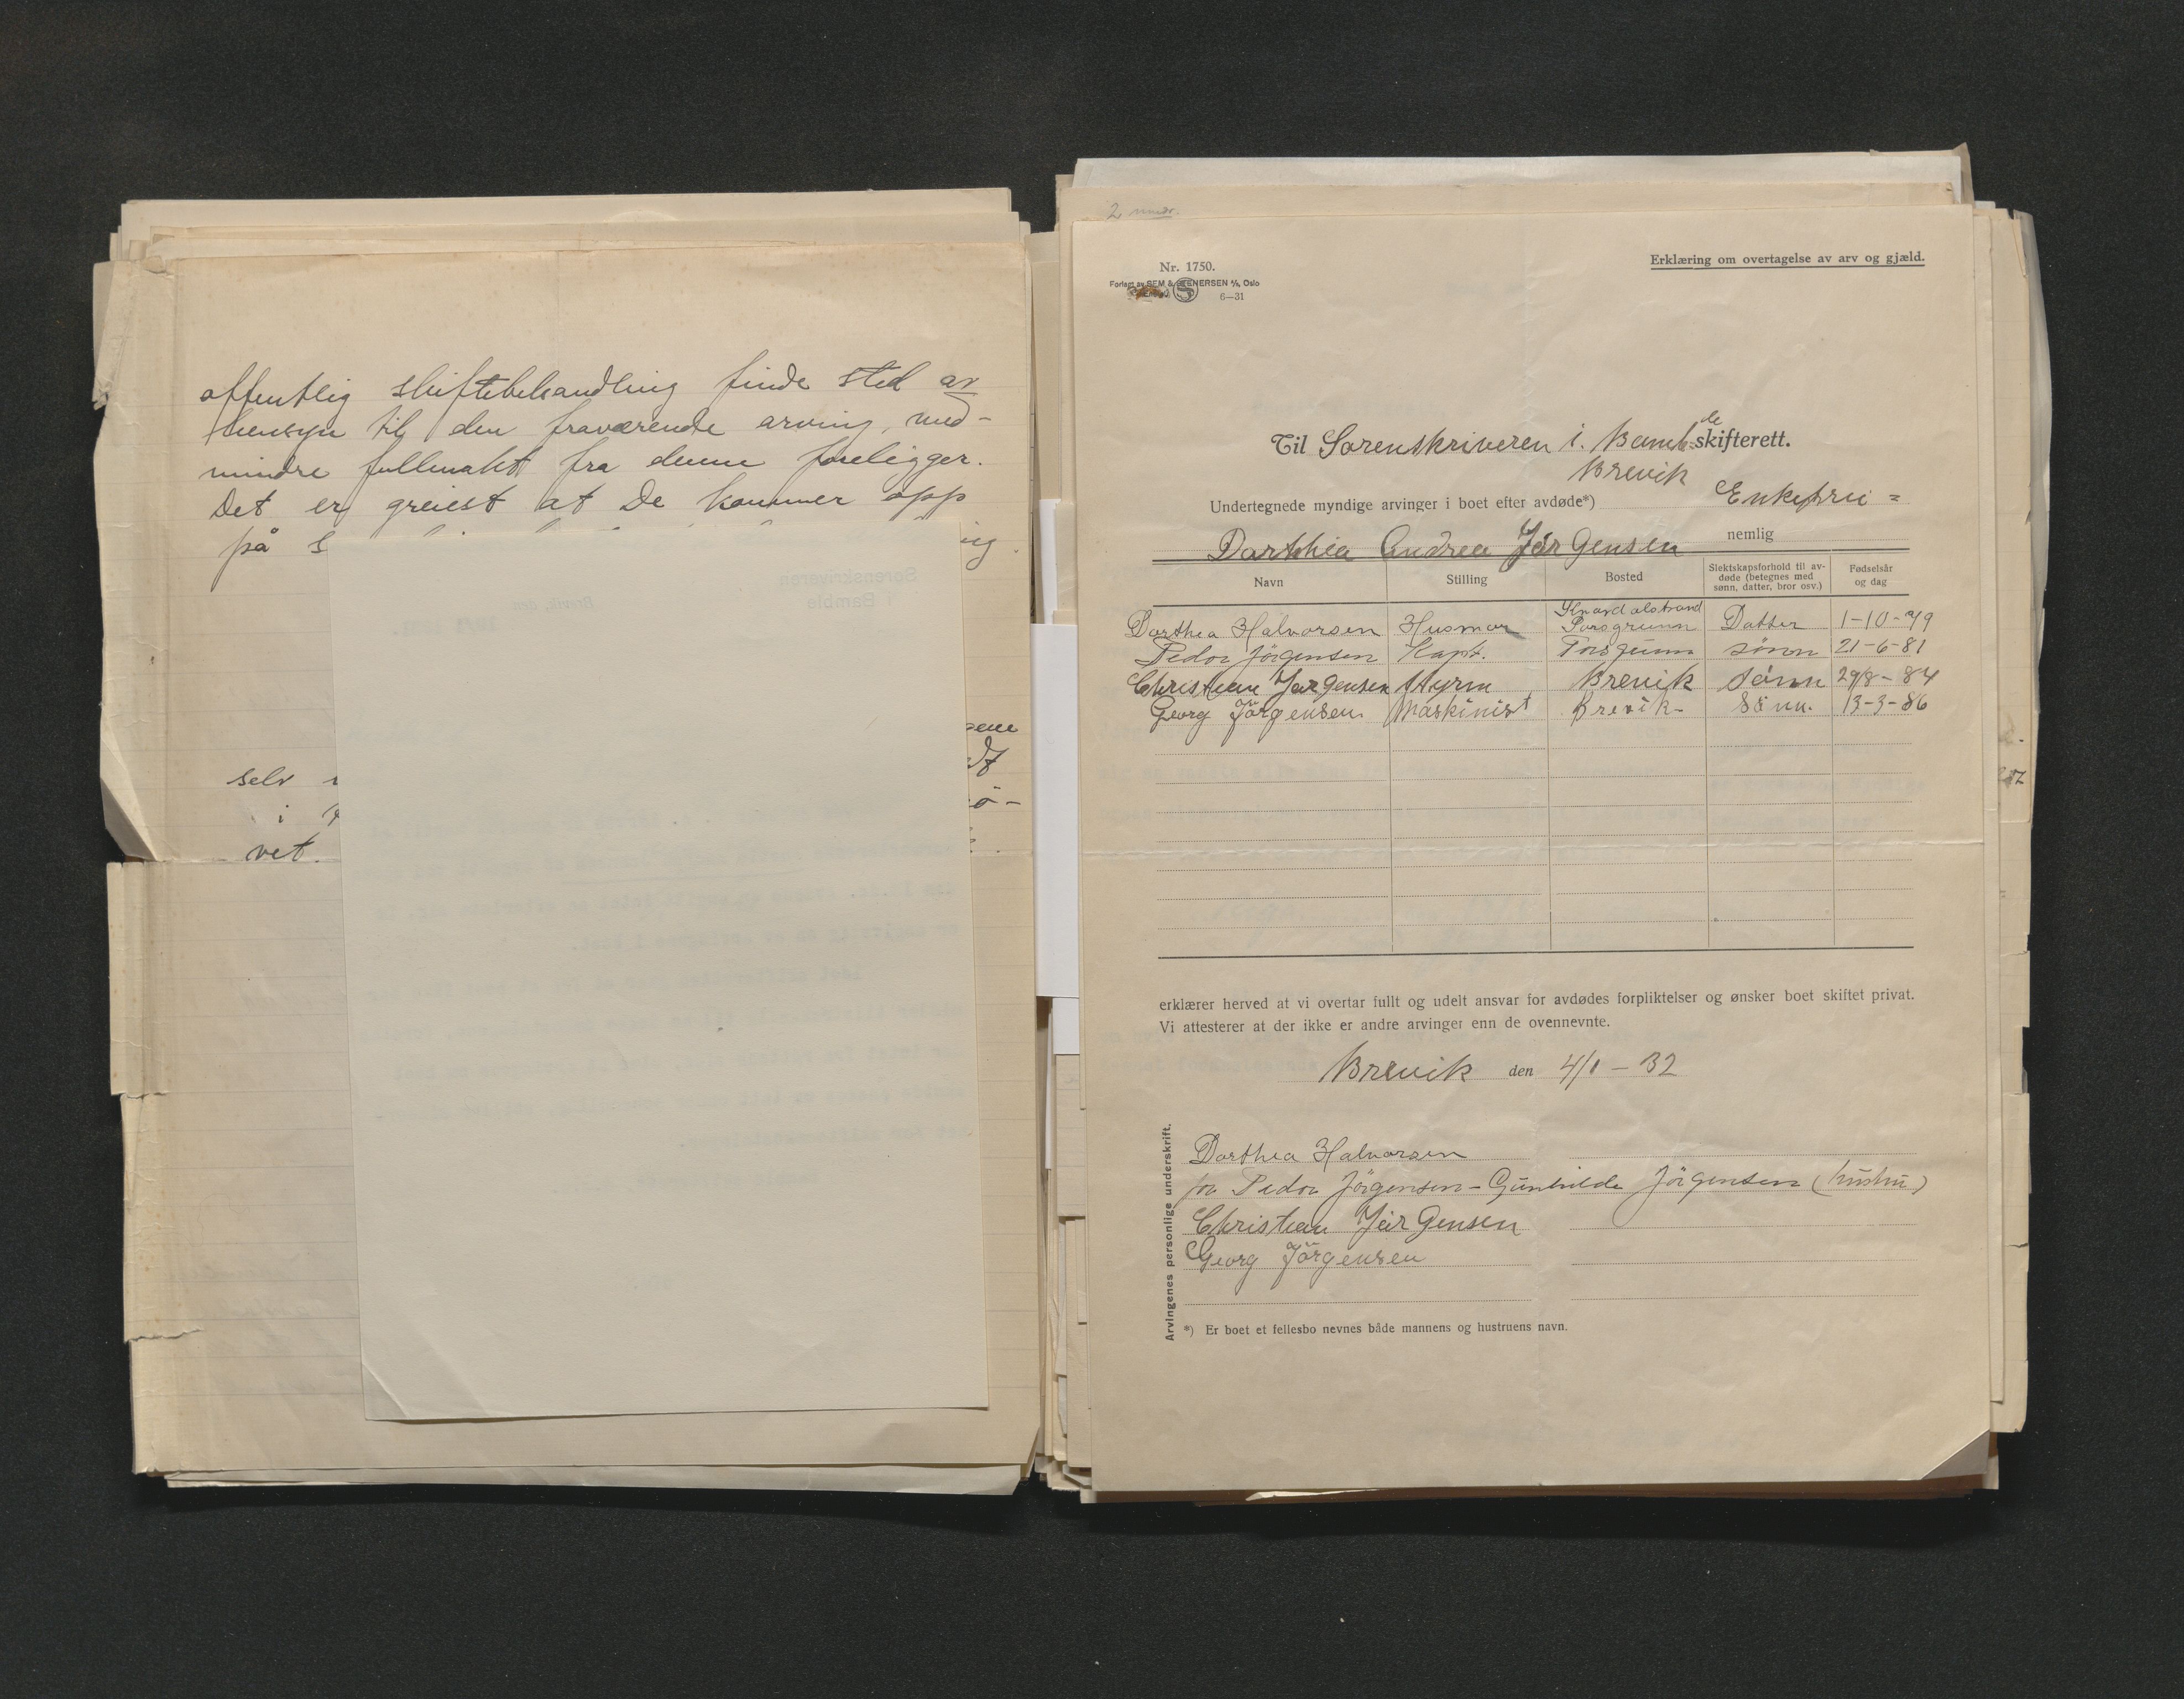 offentlig skiftebehandling finde sted av
hensyn til den fraværende arving, med-
mindre fullmakt fra denne foreligger.
Det er greiest at De kommer opp
på s
selv
i
vet.
2 
Nr. 1750.
Forlagt av SEM & STENERSEN A/S, Oslo
6—31
Erklæring om overtagelse av arv og gjæld.
Til Sorenskriveren i. Bamble skifterett.
Brevik
Undertegnede myndige arvinger i boet efter avdøde*) Enkefru =
Dorthea Andrea Jørgensen nemlig
Navn Stilling Bosted Slektskapsforhold til av-døde (betegnes med sønn, datter, bror osv.) Fødselsår og dag
Dorthea Halvorsen Husmor Knardalstrand Porsgrunn Datter 1-10-79
Peder Jörgensen Kapt. Porsgrunn sønn 21-6-81
Christian Jørgensen Styrm Brevik sønn 29/8-84
Georg Jörgensen Maskinist Brevik- Sönn. 13-3-86
erklærer herved at vi overtar fullt og udelt ansvar for avdødes forpliktelser og ønsker boet skiftet privat.
Vi attesterer at der ikke er andre arvinger enn de ovennevnte.
Brevik den 4/1 - 32
Arvingenes personlige underskrift.
Dorthea Halvorsen
for Peder Jörgensen - Gunhilde Jörgensen (hustru)
Christian Jørgensen
Georg Jörgensen
*) Er boet et fellesbo nevnes både mannens og hustruens navn.